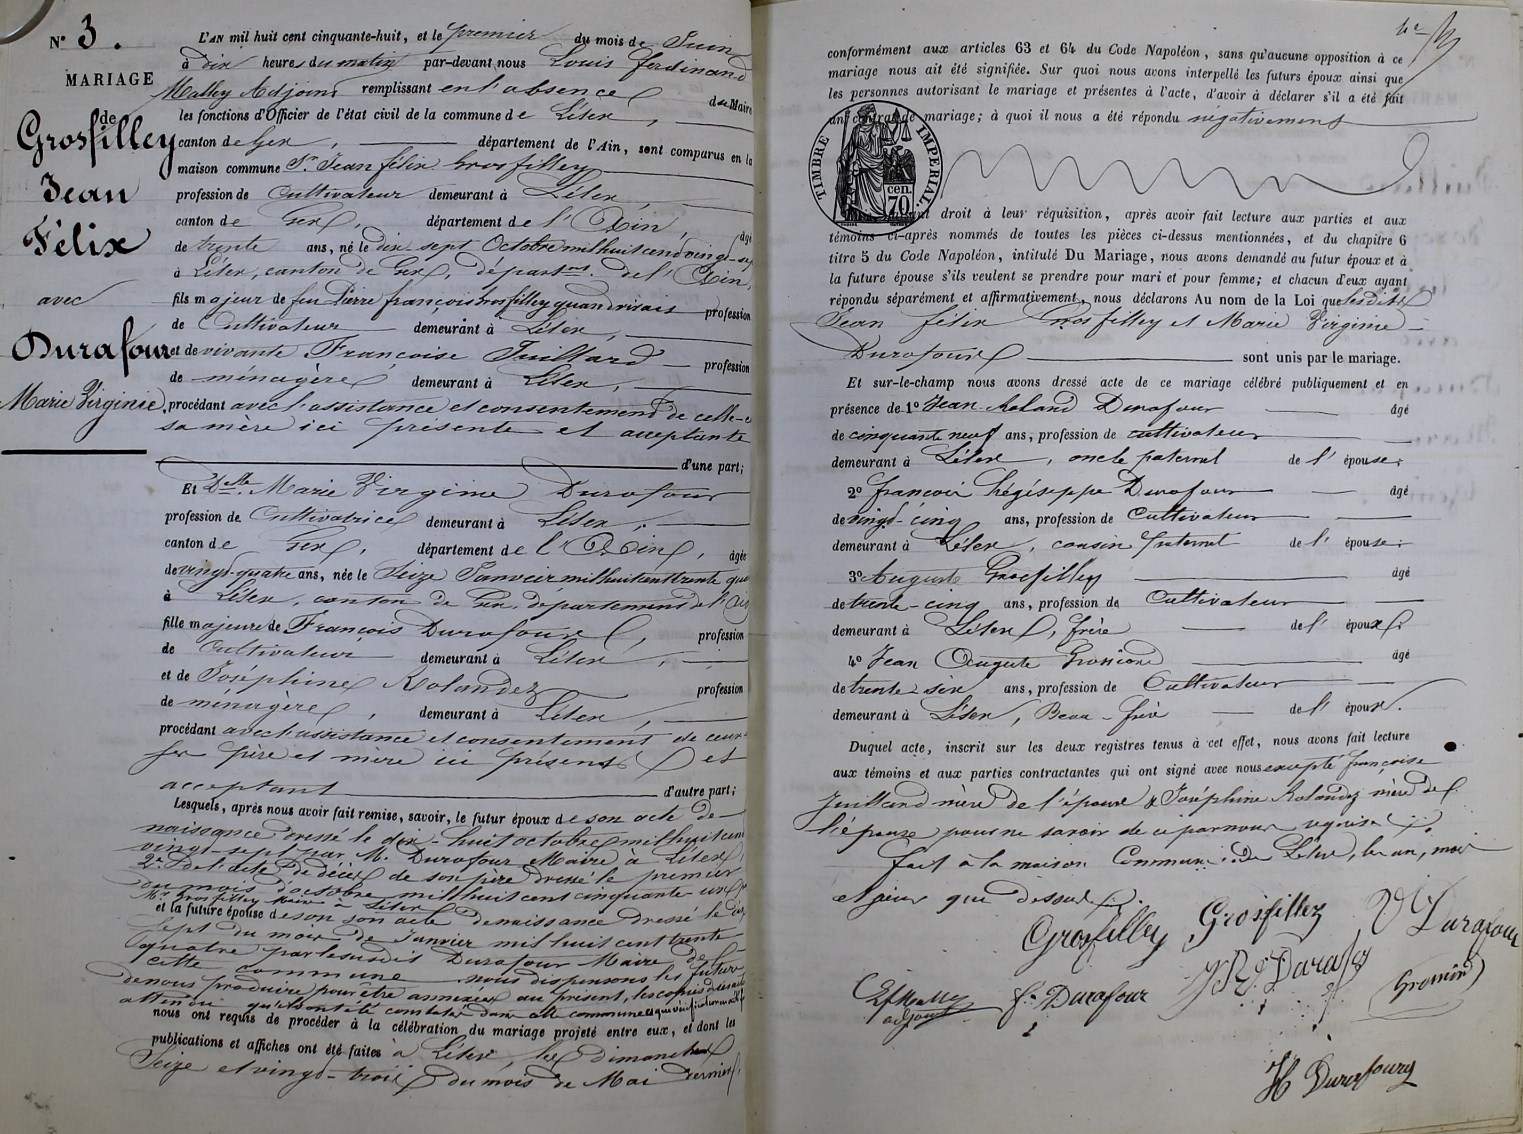 N° 3.
MARIAGE
de
Grosfilley
Jean
Félix
avec
Durafour
Marie Virginie.
L'AN mil huit cent cinquante-huit, et le premier du mois de Juin
à dix heures du matin par-devant nous Louis ferdinand
Malley Adjoint remplissant en l'absence du Maire
les fonctions d'Officier de l'état civil de la commune de Lélex,
canton de Gex, département de l'Ain, sont comparus en la
maison commune Sr Jean félix Grosfilley
profession de Cultivateur demeurant à Lélex,
canton de Gex, département de l'Ain, âgé
de trente ans, né le dix sept Octobre mil huit cent vingt-sept
à Lélex, canton de Gex, départemt de l'Ain,
fils majeur de feu Pierre françois Grosfilley quand vivait profession
de Cultivateur demeurant à Lélex,
et de vivante Françoise Juilland profession
de ménagère, demeurant à Lélex,
procédant avec l'assistance et consentement de celle-ci
sa mère ici présente et acceptante
d'une part;
Et Delle Marie Virginie Durafour
profession de Cultivatrice demeurant à Lélex,
canton de Gex, département de l'Ain, âgée
de vingt-quatre ans, née le Seize Janvier mil huit cent trente quatre
à Lélex, canton de Gex, département de l'Ain
fille majeure de François Durafour, profession
de Cultivateur demeurant à Lélex,
et de Joséphine Rolandez profession
de ménagère, demeurant à Lélex,
procédant avec l'assistance et consentement de ceux-
ses père et mère ici présents et
acceptant d'autre part;
Lesquels, après nous avoir fait remise, savoir, le futur époux de son acte de
naissance dressé le dix-huit octobre mil huit cent
vingt-sept par Mr Durafour Maire à Lélex,
2° de l'acte de décès de son père dressé le premier
du mois d'octobre mil huit cent cinquante-un
Mr Grosfilley Maire à Lélex
et la future épouse de son acte de naissance dressé le dix
sept du mois de Janvier mil huit cent trente
quatre par le susdit Durafour Maire de
cette commune nous dispensons les futurs
de nous produire pour être annexés au présent, les copies
attendu
nous ont requis de procéder à la célébration du mariage projeté entre eux, et dont les
publications et affiches ont été faites à Lélex, les dimanches
Seize et vingt-trois du mois de Mai dernier,
conformément aux articles 63 et 64 du Code Napoléon, sans qu'aucune opposition à ce
mariage nous ait été signifiée. Sur quoi nous avons interpellé les futurs époux ainsi que
les personnes autorisant le mariage et présentes à l'acte, d'avoir à déclarer s'il a été fait
un contrat de mariage; à quoi il nous a été répondu négativement
TIMBRE IMPÉRIAL
cen.
70
droit à leur réquisition, après avoir fait lecture aux parties et aux
témoins ci-après nommés de toutes les pièces ci-dessus mentionnées, et du chapitre 6
titre 5 du Code Napoléon, intitulé Du Mariage, nous avons demandé au futur époux et à
la future épouse s'ils veulent se prendre pour mari et pour femme; et chacun d'eux ayant
répondu séparément et affirmativement, nous déclarons Au nom de la Loi que lesdits
Jean félix Grosfilley et Marie Virginie
Durafour sont unis par le mariage.
Et sur-le-champ nous avons dressé acte de ce mariage célébré publiquement et en
présence de 1° Jean-Roland Durafour âgé
de cinquante neuf ans, profession de cultivateur
demeurant à Lélex, oncle paternel de l'épouse;
2° françois hégéseppe Durafour âgé
de vingt-cinq ans, profession de Cultivateur
demeurant à Lélex, cousin paternel de l'épouse;
3° Auguste Grosfilley âgé
de trente-cinq ans, profession de Cultivateur
demeurant à Lélex, frère de l'époux;
4° Jean Auguste Grossiord âgé
de trente six ans, profession de Cultivateur
demeurant à Lélex, Beau-frère de l'époux.
Duquel acte, inscrit sur les deux registres tenus à cet effet, nous avons fait lecture
aux témoins et aux parties contractantes qui ont signé avec nous excepté françoise
Juilland mère de l'époux & Joséphine Rolandez mère de
l'épouse pour ne savoir de ce par nous requises.
fait à la maison Commune de Lélex, les an, mois
et jour que dessus.
Grosfilley Grosfilley V Durafour
adjoint fs Durafour J R Durafour Grossiord
H Durafour